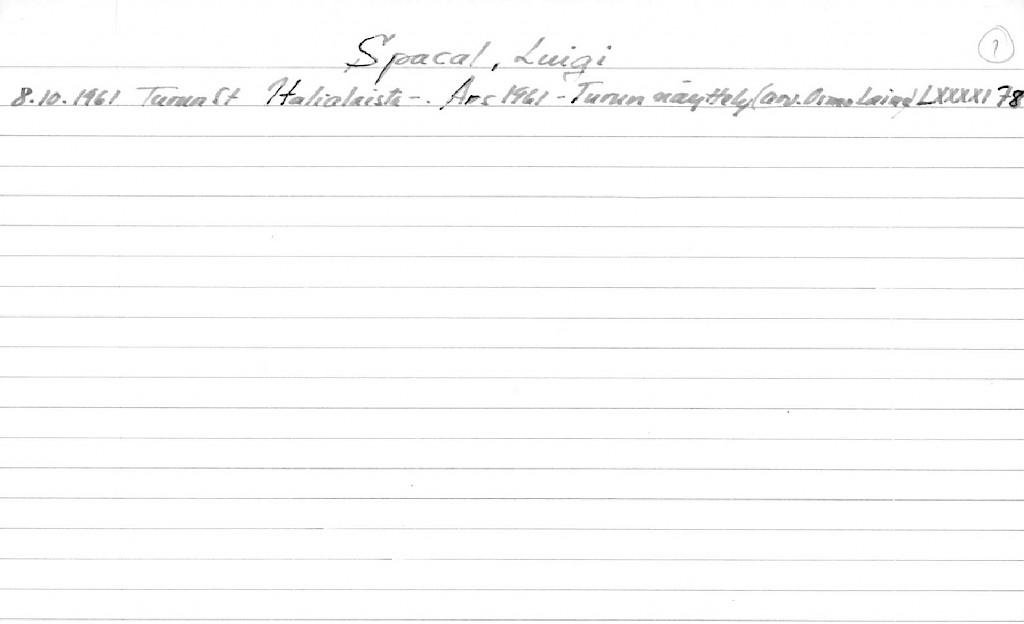 Spacal, Luigi
1
8.10.1961 TurunSt Italialaista -. Ars 1961 - Turun näyttely (arv. Osmo Laine) LXXXXI 78